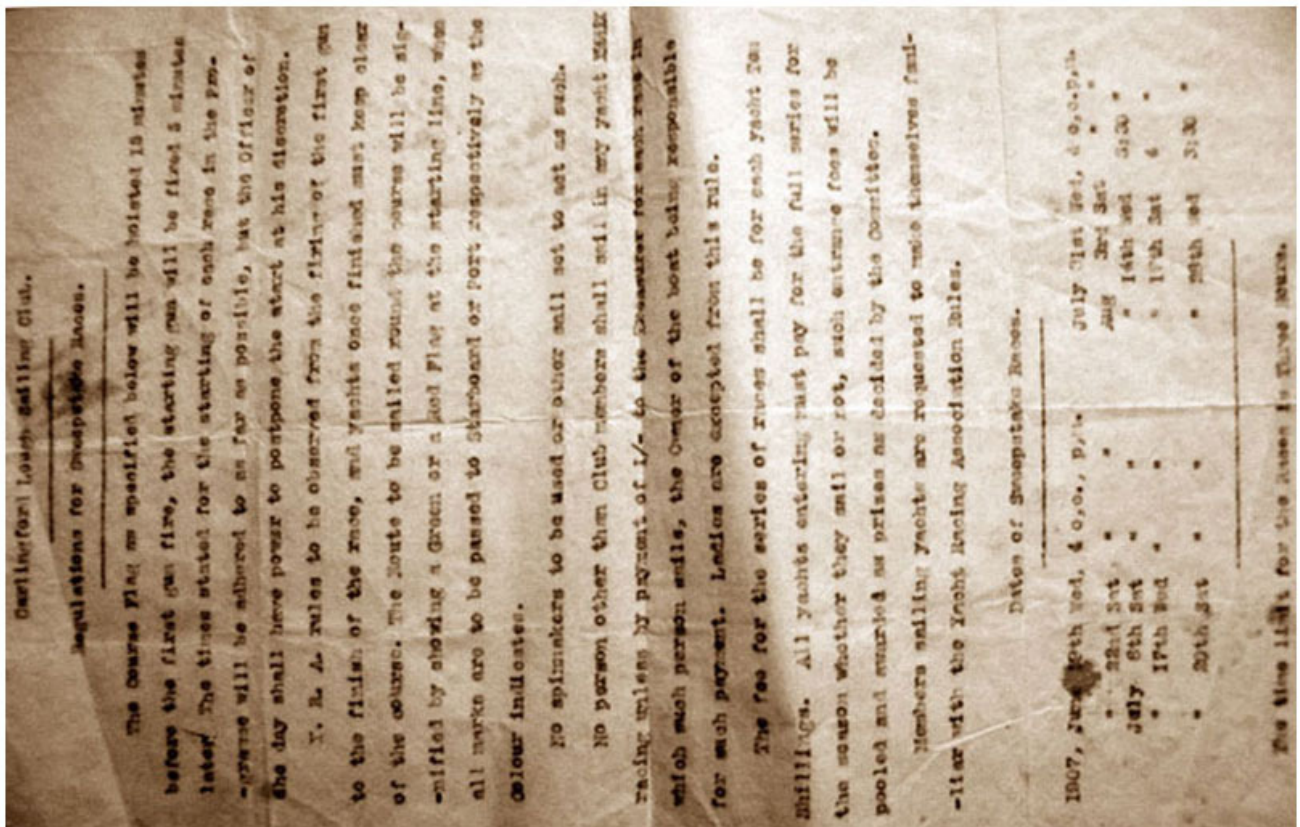 Carlingford Lough Sailing Club.
Regulations for Sweepstake Races.
The Course Flag as specified below will be hoisted 15 minutes
before the first gun fire, the starting gun will be fired 5 minutes
later. The times stated for the starting of each race in the pro-
-gramme will be adhered to as far as possible, but the Officer of
the day shall have power to postpone the start at his discretion.
Y. R. A. rules to be observed from the firing of the first gun
to the finish of the race, and yachts once finished must keep clear
of the course. The Route to be sailed round the course will be sig-
-nified by showing a Green or a Red Flag at the starting line, when
all marks are to be passed to Starboard or Port respectively as the
colour indicates.
No spinnakers to be used or other sail set to act as such.
No person other than Club members shall sail in any yacht
racing unless by payment of 1/- to the Treasurer for each race in
which such person sails, the Owner of the boat being responsible
for such payment. Ladies are excepted from this rule.
The fee for the series of races shall be for each yacht Ten
Shillings. All yachts entering must pay for the full series for
the season whether they sail or not, such entrance fees will be
pooled and awarded as prizes as decided by the Committee.
Members sailing yachts are requested to make themselves fami-
-liar with the Yacht Racing Association Rules.
Dates of Sweepstake Races.
1907, June Wed, 4 o,c., p,m. July 31st Wed, 4 o,c.p,m.
" 22nd Sat " " Aug 3rd Sat " "
July 6th Sat " " " 14th Wed 3:30 "
" 17th Wed " " " 17th Sat 4 "
" 20th Sat " " " 28th Wed 3:30 "
The time limit for the Races is Three hours.